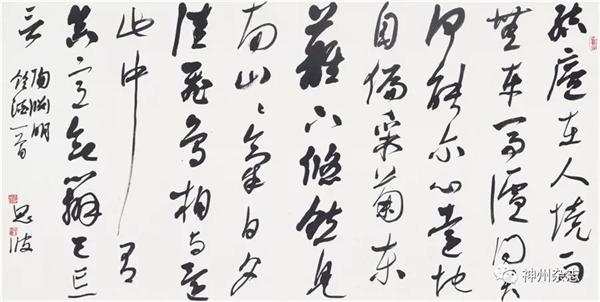 結廬在人境而
無車馬喧問君
何能尔心遠地
自偏采菊東
籬下悠然見
南山々氣日夕
佳飛鳥相與還
此中有
真意欲辯已忘
言
陶淵明
飲酒一首
思波
神州杂志